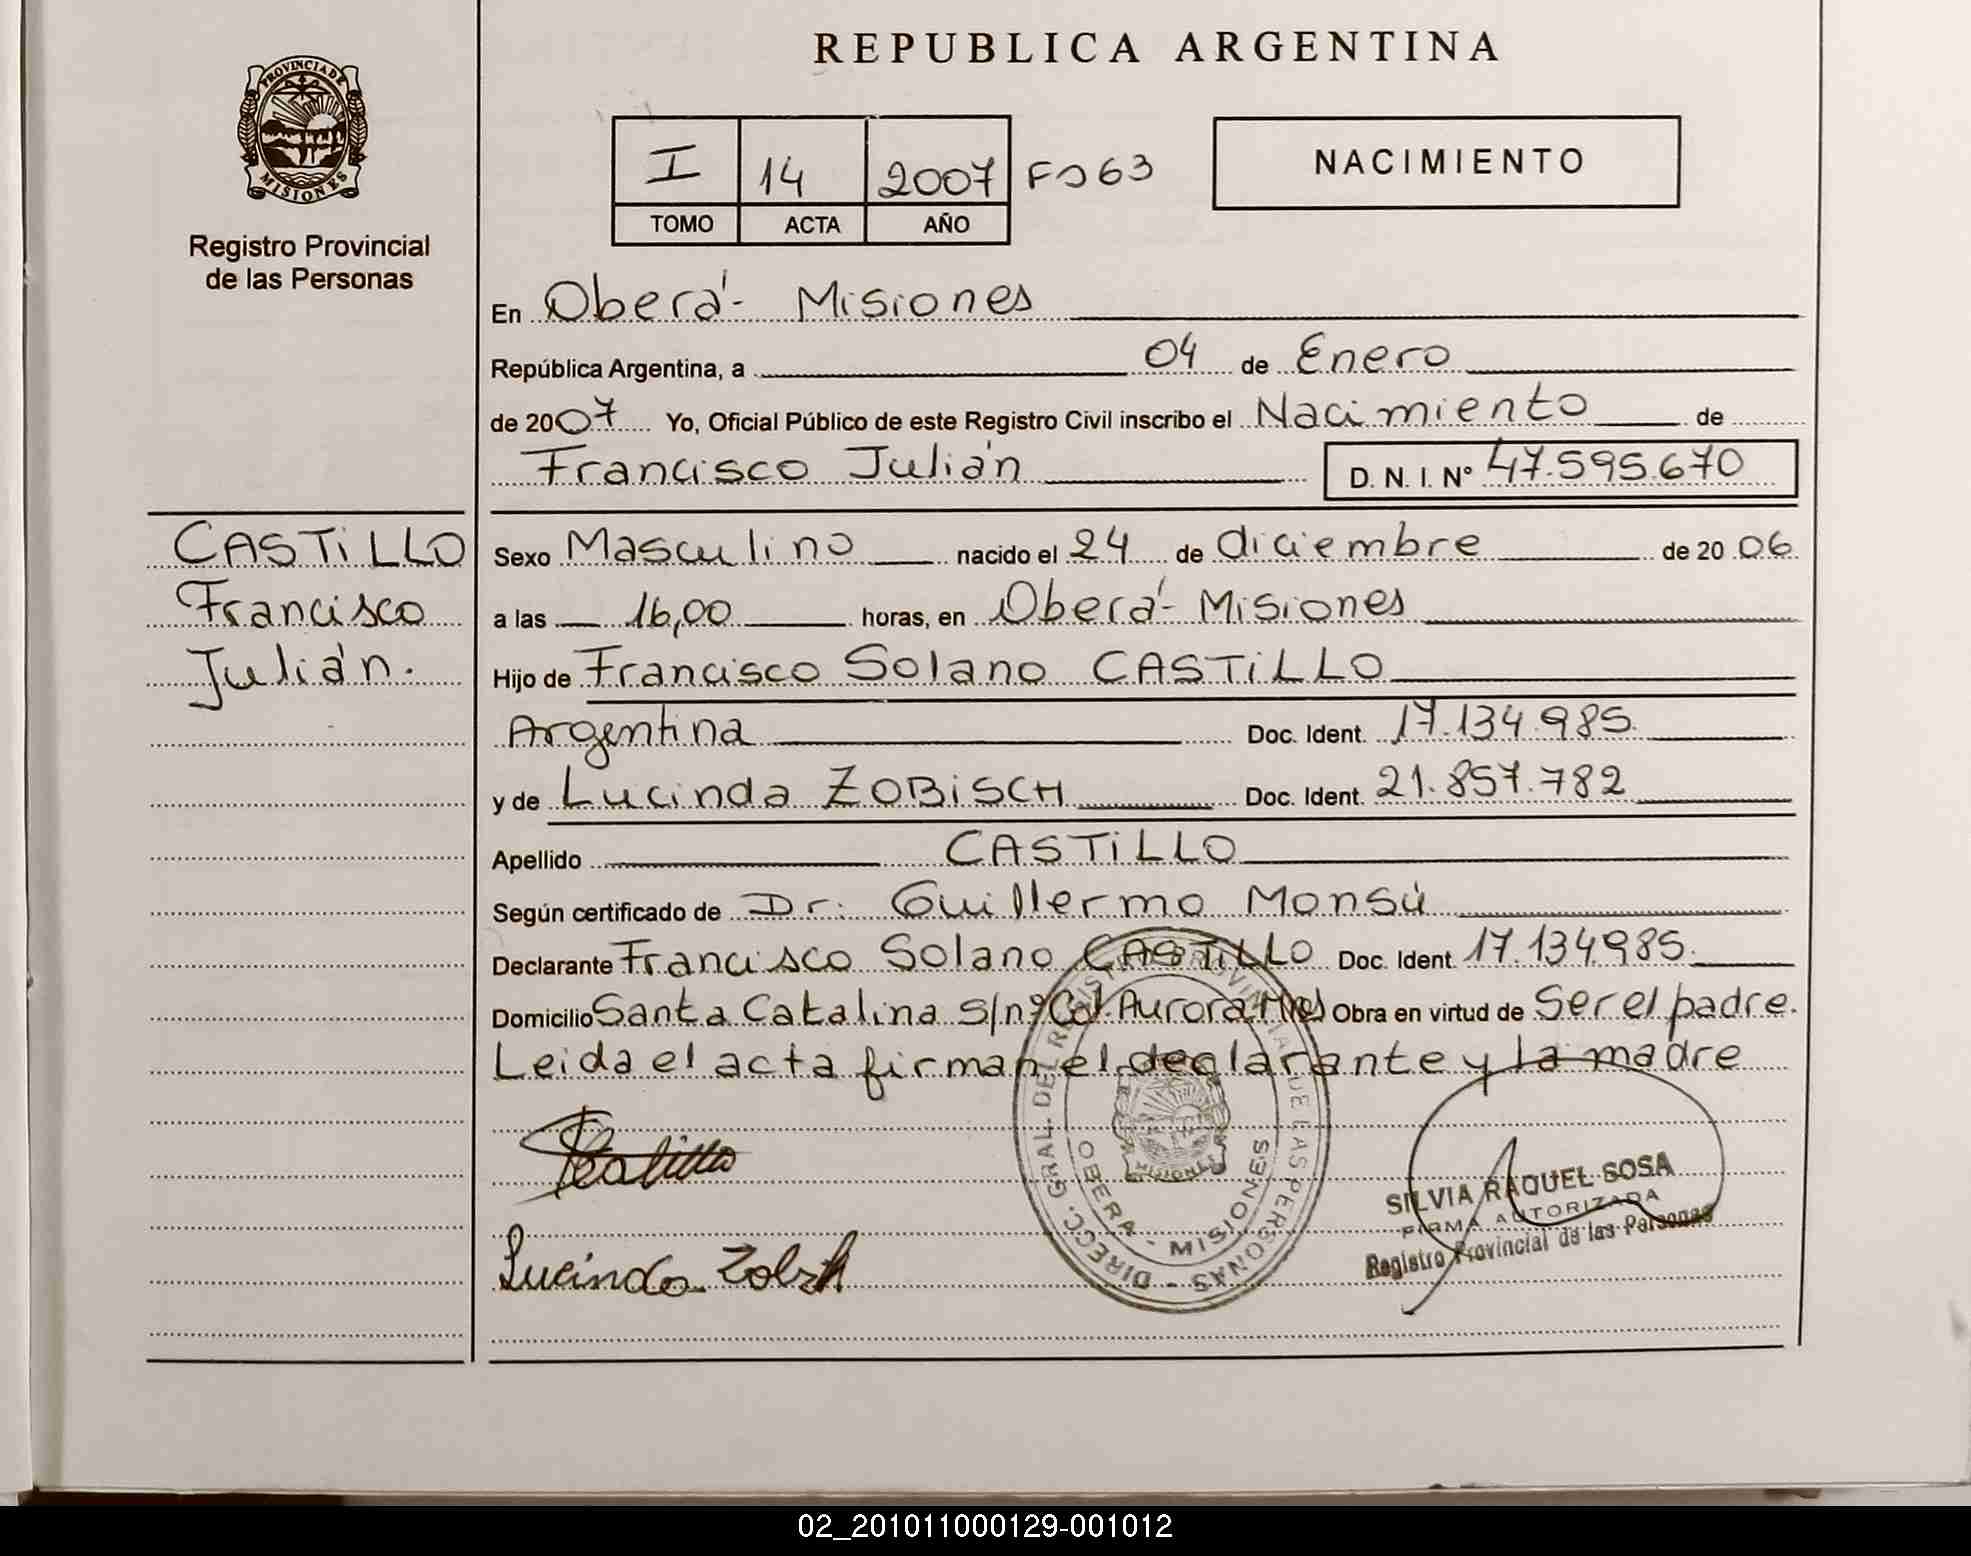 REPUBLICA ARGENTINA
PROVINCIA DE
MISIONES
Registro Provincial
de las Personas
I 14 2007 Fº 63
TOMO ACTA AÑO
NACIMIENTO
En Oberá - Misiones
República Argentina, a 04 de Enero
de 2007 Yo, Oficial Público de este Registro Civil inscribo el Nacimiento de
Francisco Julián D. N. I. Nº 47.595.670
CASTILLO
Francisco
Julián.
Sexo Masculino nacido el 24 de diciembre de 20 06
a las 16,00 horas, en Oberá - Misiones
Hijo de Francisco Solano CASTILLO
Argentina Doc. Ident. 17.134.985.
y de Lucinda ZOBISCH Doc. Ident. 21.857.782
Apellido CASTILLO
Según certificado de Dr. Guillermo Monsú
Declarante Francisco Solano CASTILLO Doc. Ident. 17.134985.
Domicilio Santa Catalina s/nº Col. Aurora Obra en virtud de Ser el padre.
Leida el acta firman el declarante y la madre
Castillo
Lucinda
DIRECC. GRAL. DEL REGISTRO PROVINCIAL DE LAS PERSONAS -
OBERA - MISIONES
MISIONES
SILVIA RAQUEL SOSA
FIRMA AUTORIZADA
Registro Provincial de las Personas
02_201011000129-001012